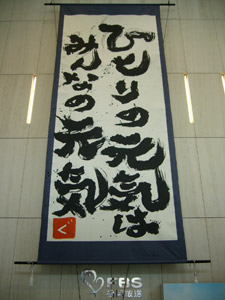 ひとりの元気は
みんなの元気
ぐ
FBS
福岡放送